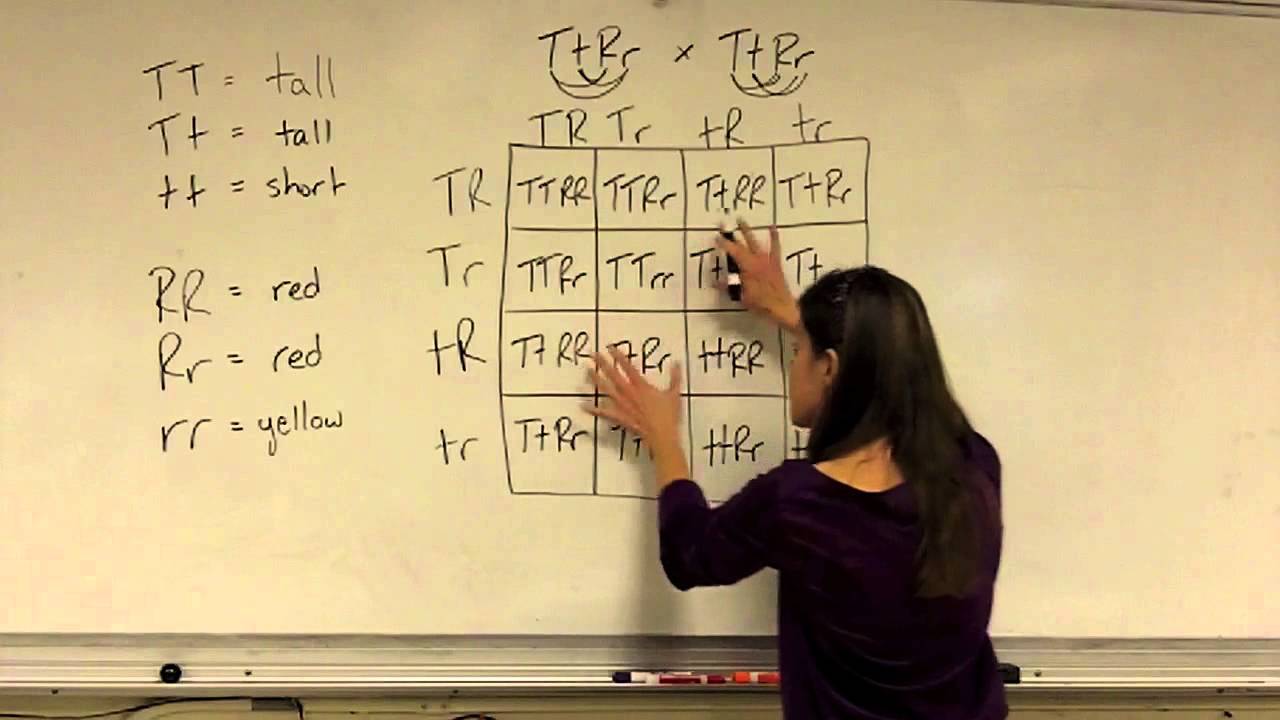 TtRr × TtRr
TT = tall
Tt = tall
tt = short
RR = red
Rr = red
rr = yellow
TR Tr tR tr
TR TTRR TTRr TtRR TtRr
Tr TTRr TTrr Tt Tt
tR TtRR TtRr ttRR
tr TtRr ttRr